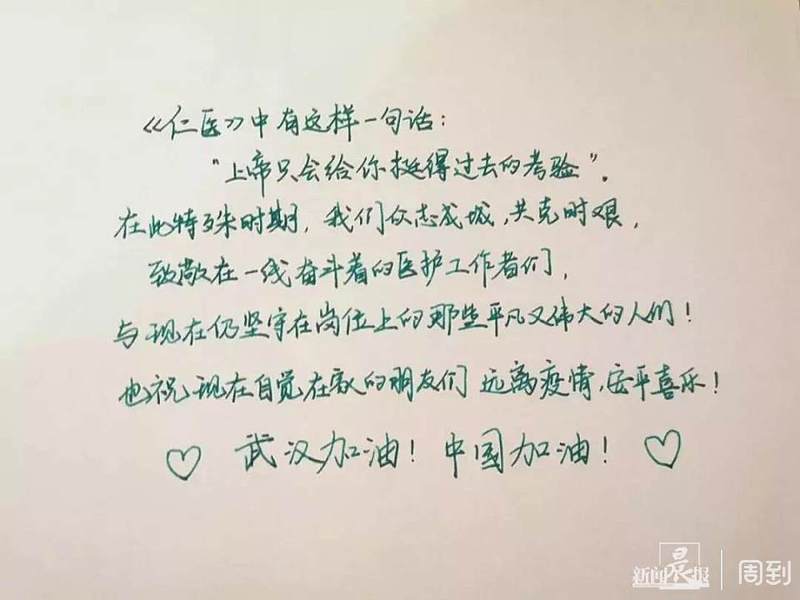 《仁医》中有这样一句话：
“上帝只会给你挺得过去的考验”。
在此特殊时期，我们众志成城，共克时艰，
致敬在一线奋斗着的医护工作者们，
与现在仍坚守在岗位上的那些平凡又伟大的人们！
也祝现在自觉在家的朋友们 远离疫情，安平喜乐！
♡ 武汉加油！中国加油！♡
新闻晨报 | 周到